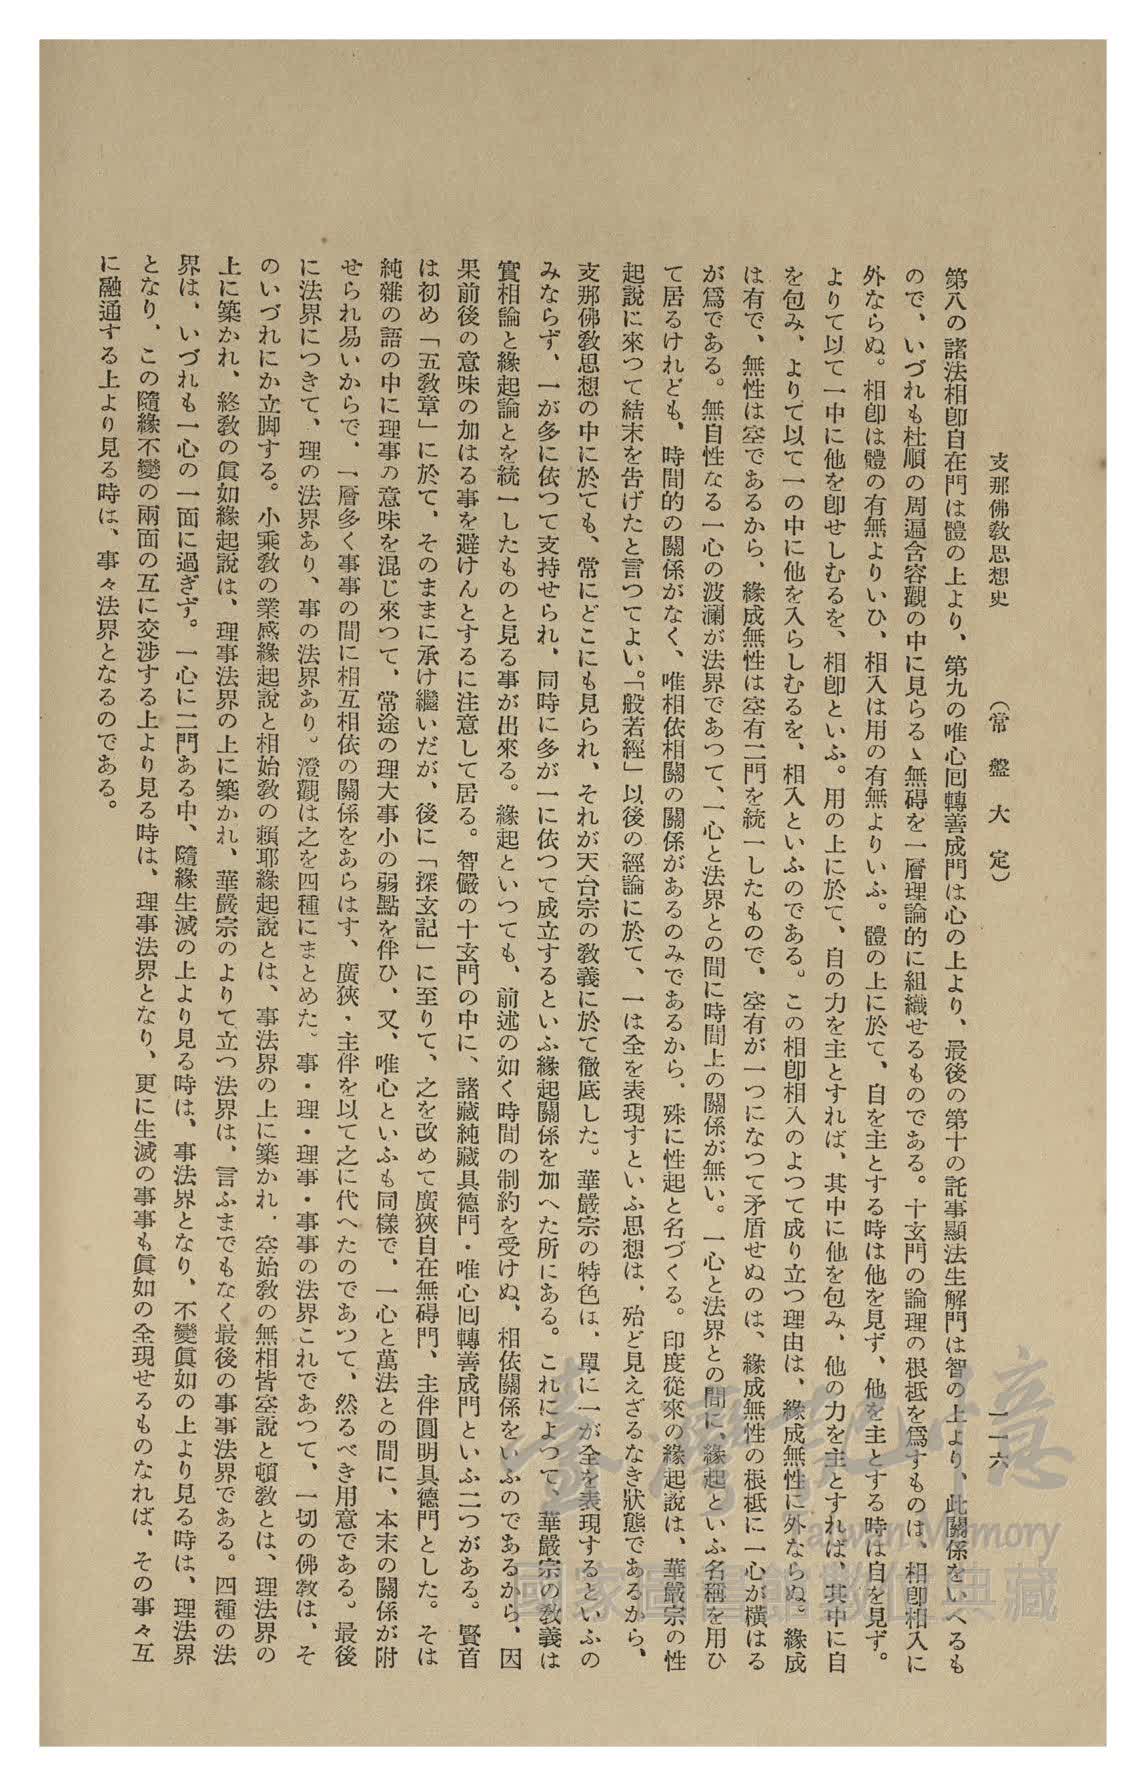 支那佛敎思想史　（常盤大定）　一一六
第八の諸法相卽自在門は體の上より、第九の唯心囘轉善成門は心の上より、最後の第十の託事顯法生解門は智の上より、此關係をいへるも
ので、いづれも杜順の周遍含容觀の中に見らるゝ無碍を一層理論的に組織せるものである。十玄門の論理の根柢を爲すものは、相卽相入に
外ならぬ。相卽は體の有無よりいひ、相入は用の有無よりいふ。體の上に於て、自を主とする時は他を見ず、他を主とする時は自を見ず。
よりて以て一中に他を卽せしむるを、相卽といふ。用の上に於て、自の力を主とすれば、其中に他を包み、他の力を主とすれば、其中に自
を包み、よりて以て一の中に他を入らしむるを、相入といふのである。この相卽相入のよつて成り立つ理由は、緣成無性に外ならぬ。緣成
は有で、無性は空であるから、緣成無性は空有二門を統一したもので、空有が一つになつて矛盾せぬのは、緣成無性の根柢に一心が橫はる
が爲である。無自性なる一心の波瀾が法界であつて、一心と法界との間に時間上の關係が無い。一心と法界との間に、緣起といふ名稱を用ひ
て居るけれども、時間的の關係がなく、唯相依相關の關係があるのみであるから、殊に性起と名づくる。印度從來の緣起說は、華嚴宗の性
起說に來つて結末を告げたと言つてよい。「般若經」以後の經論に於て、一は全を表現すといふ思想は、殆ど見えざるなき狀態であるから、
支那佛敎思想の中に於ても、常にどこにも見られ、それが天台宗の敎義に於て徹底した。華嚴宗の特色は、單に一が全を表現するといふの
みならず、一が多に依つて支持せられ、同時に多が一に依つて成立するといふ緣起關係を加へた所にある。これによつて、華嚴宗の敎義は
實相論と緣起論とを統一したものと見る事が出來る。緣起といつても、前述の如く時間の制約を受けぬ、相依關係をいふのであるから、因
果前後の意味の加はる事を避けんとするに注意して居る。智儼の十玄門の中に、諸藏純藏具德門・唯心囘轉善成門といふ二つがある。賢首
は初め「五敎章」に於て、そのままに承け繼いだが、後に「探玄記」に至りて、之を改めて廣狹自在無碍門、主伴圓明具德門とした。そは
純雜の語の中に理事の意味を混じ來つて、常途の理大事小の弱點を伴ひ、又、唯心といふも同樣で、一心と萬法との間に、本末の關係が附
せられ易いからで、一層多く事事の間に相互相依の關係をあらはす、廣狹・主伴を以て之に代へたのであつて、然るべき用意である。最後
に法界につきて、理の法界あり、事の法界あり。澄觀は之を四種にまとめた。事・理・理事・事事の法界これであつて、一切の佛敎は、そ
のいづれにか立脚する。小乘敎の業感緣起說と相始敎の賴耶緣起說とは、事法界の上に築かれ、空始敎の無相皆空說と頓敎とは、理法界の
上に築かれ、終敎の眞如緣起說は、理事法界の上に築かれ、華嚴宗のよりて立つ法界は、言ふまでもなく最後の事事法界である。四種の法
界は、いづれも一心の一面に過ぎず。一心に二門ある中、隨緣生滅の上より見る時は、事法界となり、不變眞如の上より見る時は、理法界
となり、この隨緣不變の兩面の互に交涉する上より見る時は、理事法界となり、更に生滅の事事も眞如の全現せるものなれば、その事々互
に融通する上より見る時は、事々法界となるのである。
臺灣記憶
Taiwan Memory
國家圖書館數位典藏